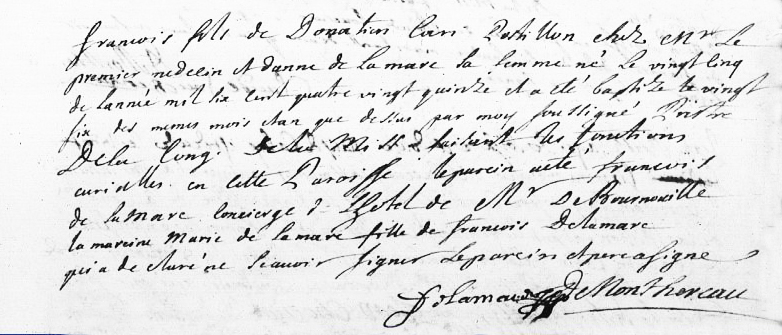 francois fils de Donatien Cari Postillon chez Mr Le
premier medecin et danne de Lamare sa femme né Le vingt Cinq
de Lannée mil six Cent quatre vingt quinze et a eté baptize Le vingt
six des memes mois et an que dessus par moy soussigné Prestre
De la Cong. De la Miss. faisant les fonctions
curialles en cette Paroisse Leparein aeté francois
de Lamare Concierge d Lhotel de Mr De Bournonville
La mareine Marie de Lamare fille de francois Delamare
qui a declaré ne Scavoir signer Leparein et pere a signe
f. delamare De Monthereau